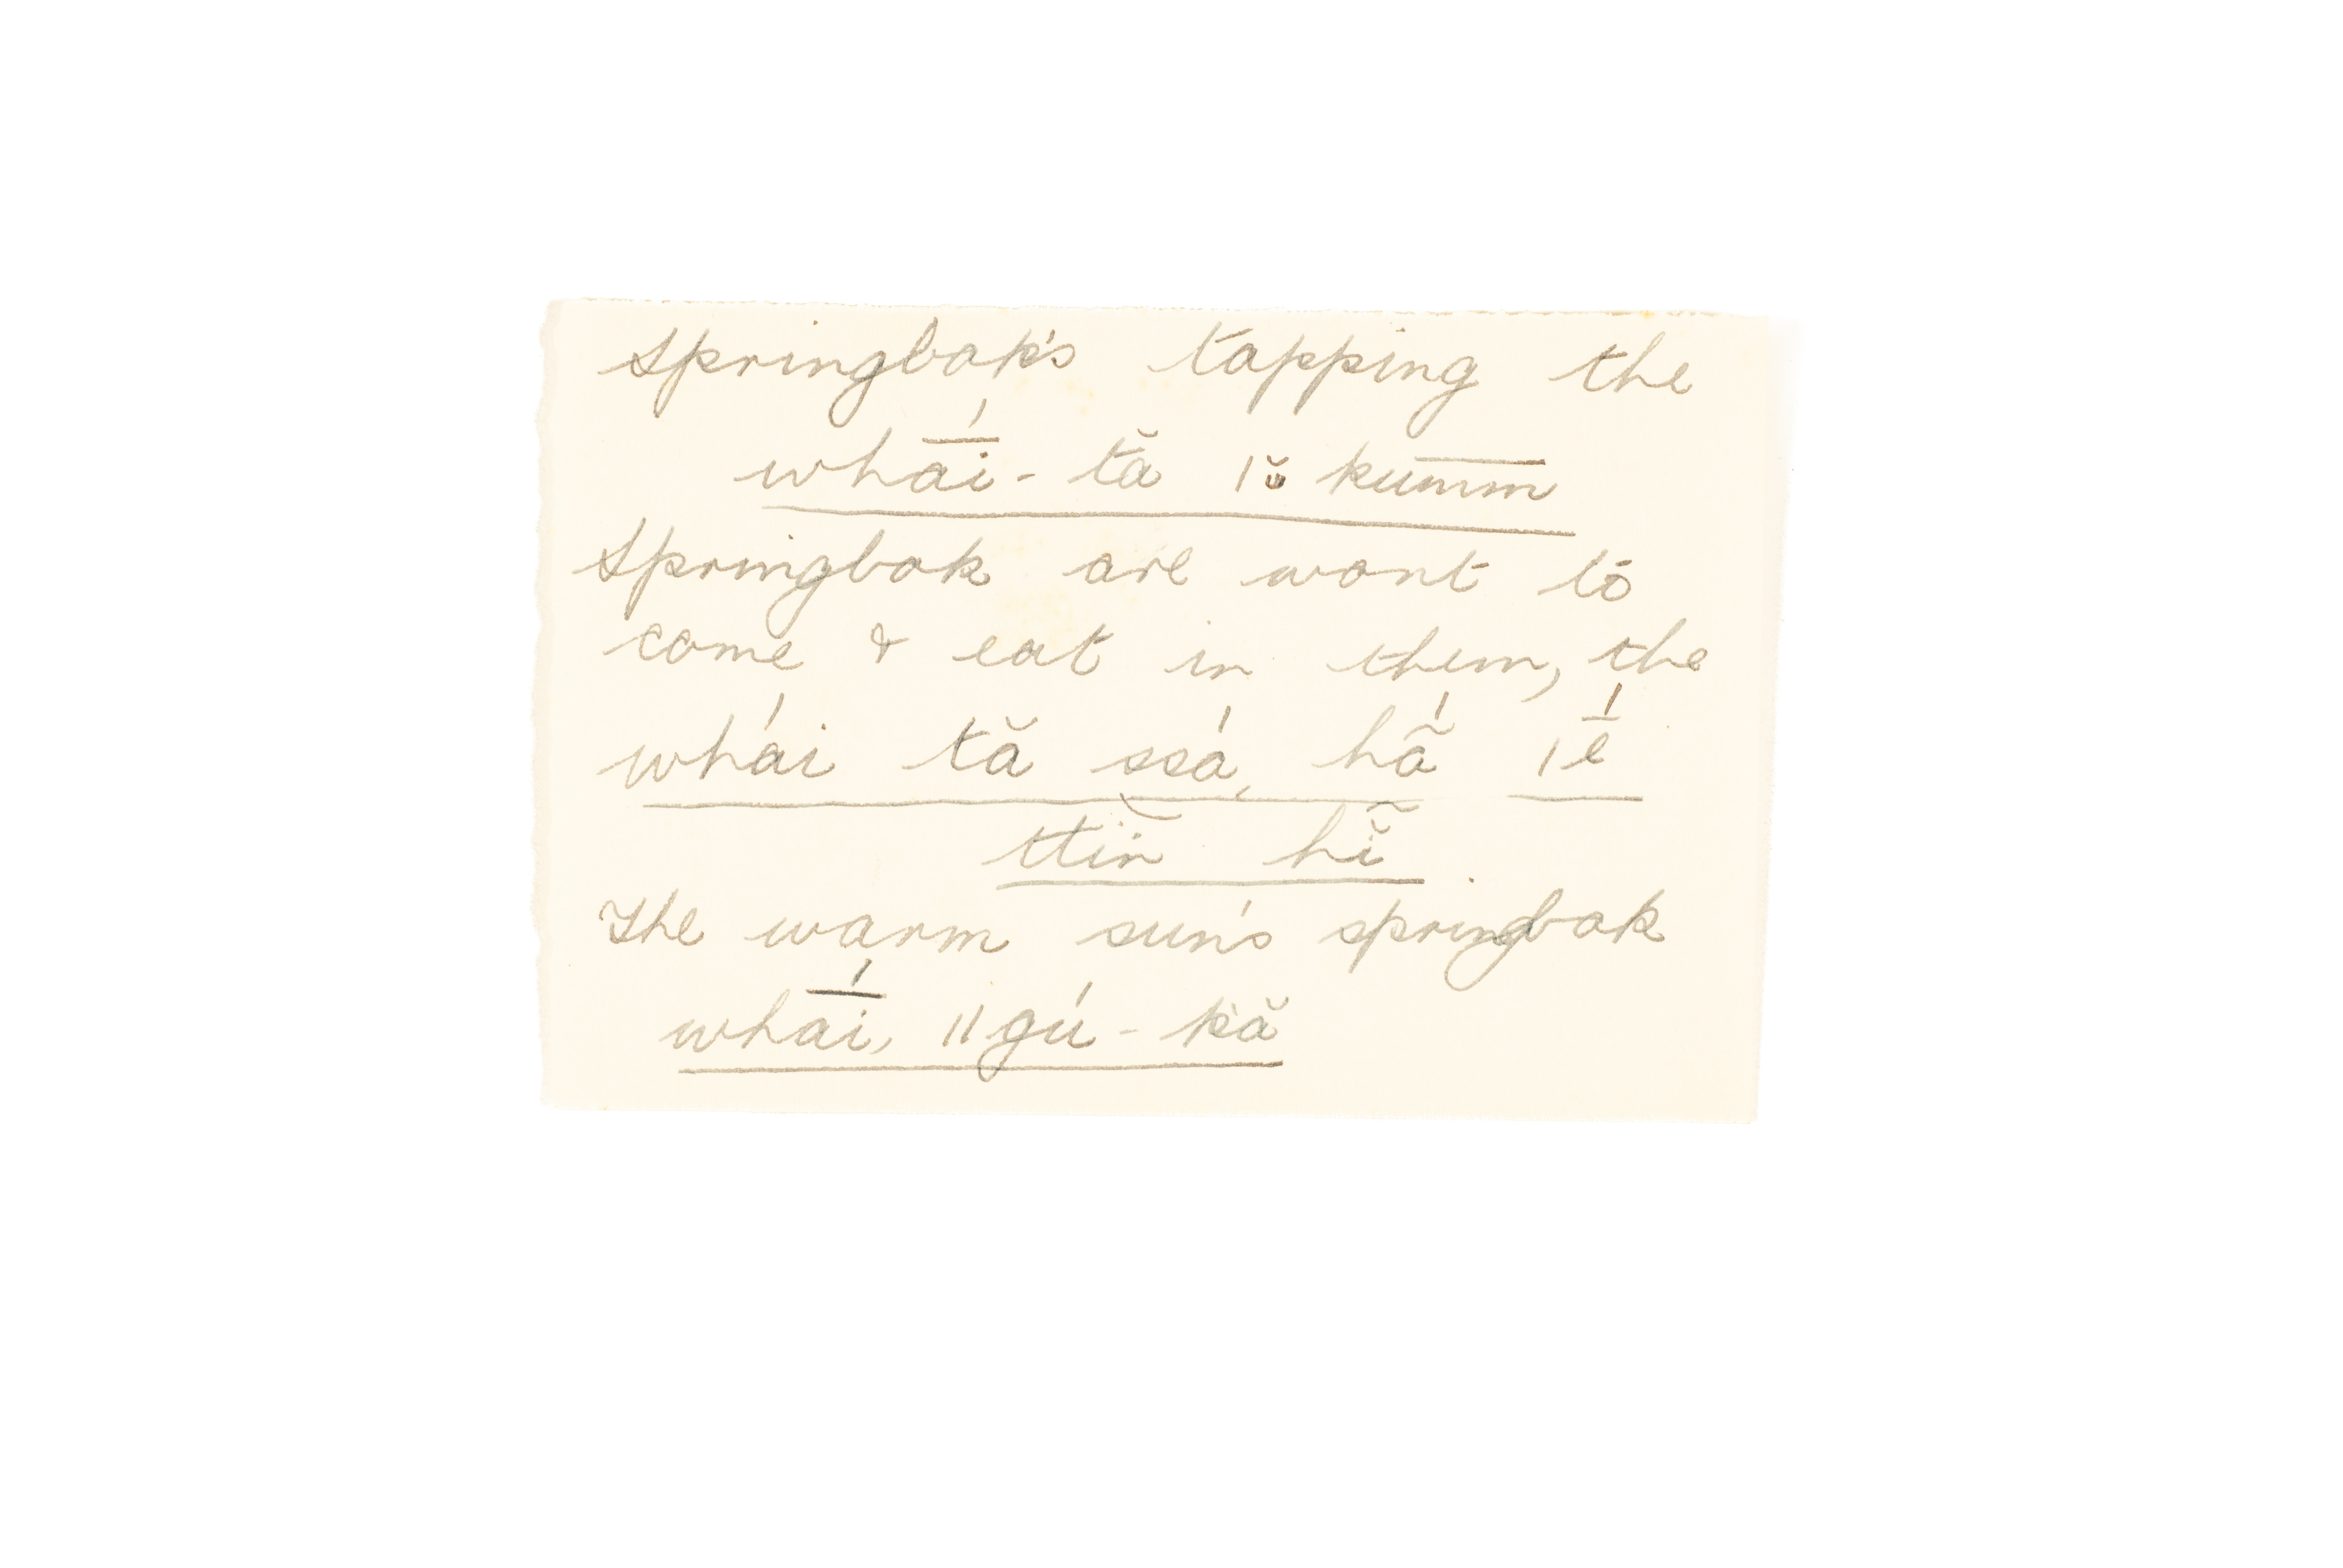 Springbok's tapping the
whā́i-tă |ṳ̆ kum̅m̅
Springbok are wont to
come & eat in them, the
whái tă ssá, hã́ |ḗ
ttin̆̃ hĭ̃
The warm sun's springbok
whā́i, ||gú-kă